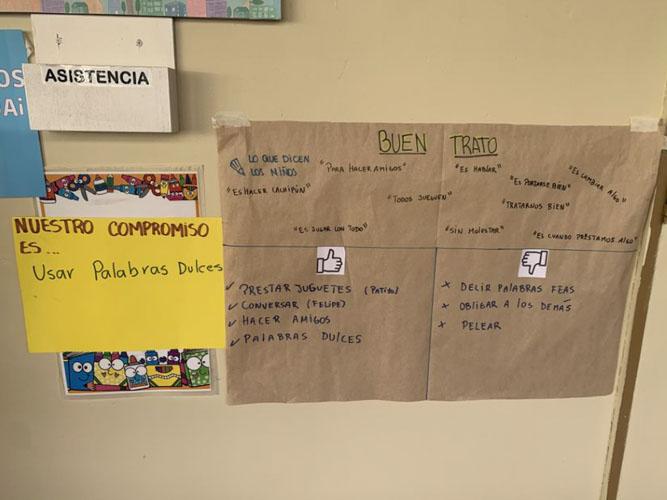 OS
Ai
ASISTENCIA
NUESTRO COMPROMISO
ES...
Usar Palabras Dulces
BUEN TRATO
LO QUE DICEN
LOS NIÑOS
"PARA HACER AMIGOS"
"ES HABLAR"
"ES CAMBIAR ALGO"
"ES HACER CACHIPÚN"
"TODOS JUEGUEN"
"ES PORTARSE BIEN"
"TRATARNOS BIEN"
"ES JUGAR CON TODO"
"SIN MOLESTAR"
"ES CUANDO PRÉSTAMOS ALGO"
✓ PRESTAR JUGUETES
✓ CONVERSAR (FELIPE)
✓ HACER AMIGOS
✓ PALABRAS DULCES
× DECIR PALABRAS FEAS
× OBLIGAR A LOS DEMÁS
× PELEAR